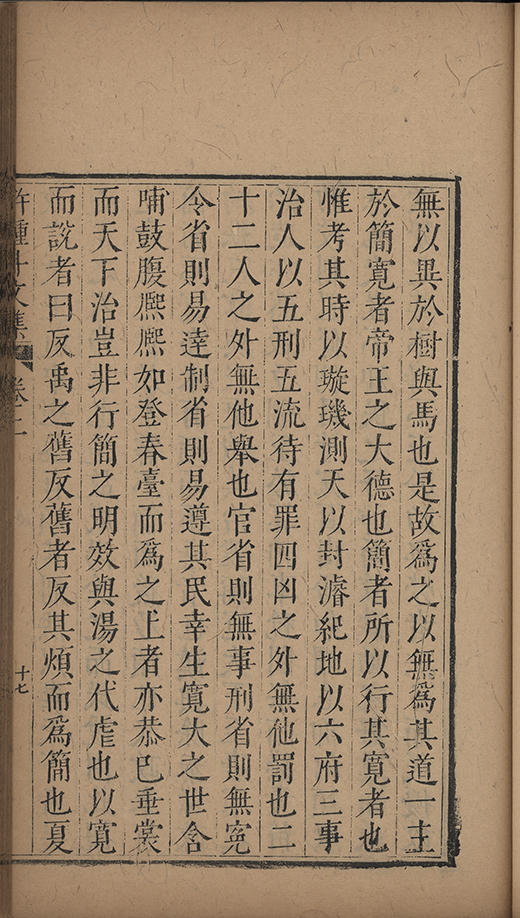 無以異於樹與馬也是故爲之以無爲其道一主
於簡寬者帝王之大德也簡者所以行其寬者也
惟考其時以璇璣測天以封濬紀地以六府三事
治人以五刑五流待有罪四凶之外無他罰也二
十二人之外無他舉也官省則無事刑省則無寃
令省則易達制省則易遵其民幸生寬大之世含
哺鼓腹熈熈如登春臺而爲之上者亦恭已垂裳
而天下治豈非行簡之明效與湯之代虐也以寬
而説者曰反禹之舊反舊者反其煩而爲簡也夏
許鍾斗文集 卷二 十七